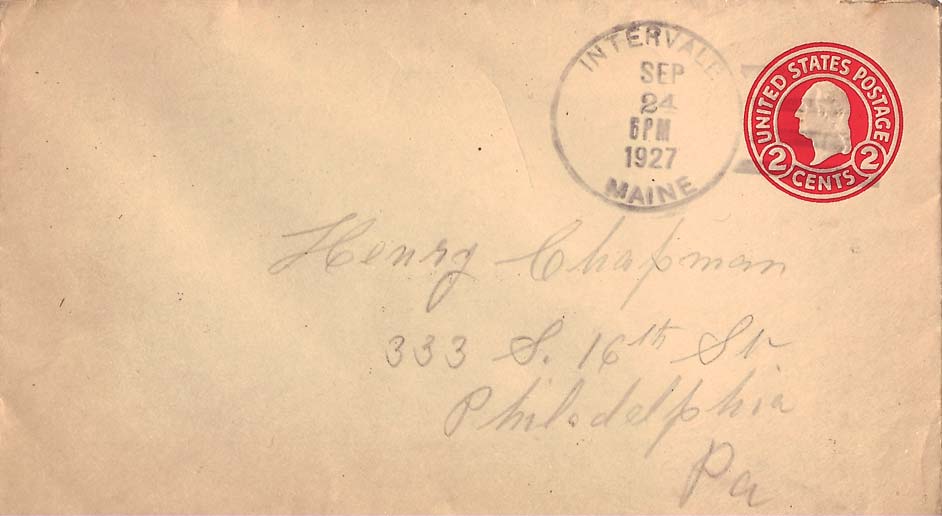 INTERVALE
SEP
24
6PM
1927
MAINE
UNITED STATES POSTAGE
2 CENTS 2
Henry Chapman
333 S. 16th St.
Philadelphia
Pa